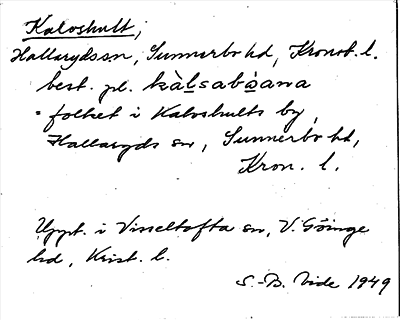 Kaloshult,
Hallarydssn, Sunnerbo hd, Kronob. l.
best. pl. kàlsabòana
= folket i Kaloshults by,
Hallaryds sn, Sunnerbo hd,
Kron. l.
Uppt. i Visseltofta sn, V. Göinge
hd, Krist. l.
S.-B. Vide 1949